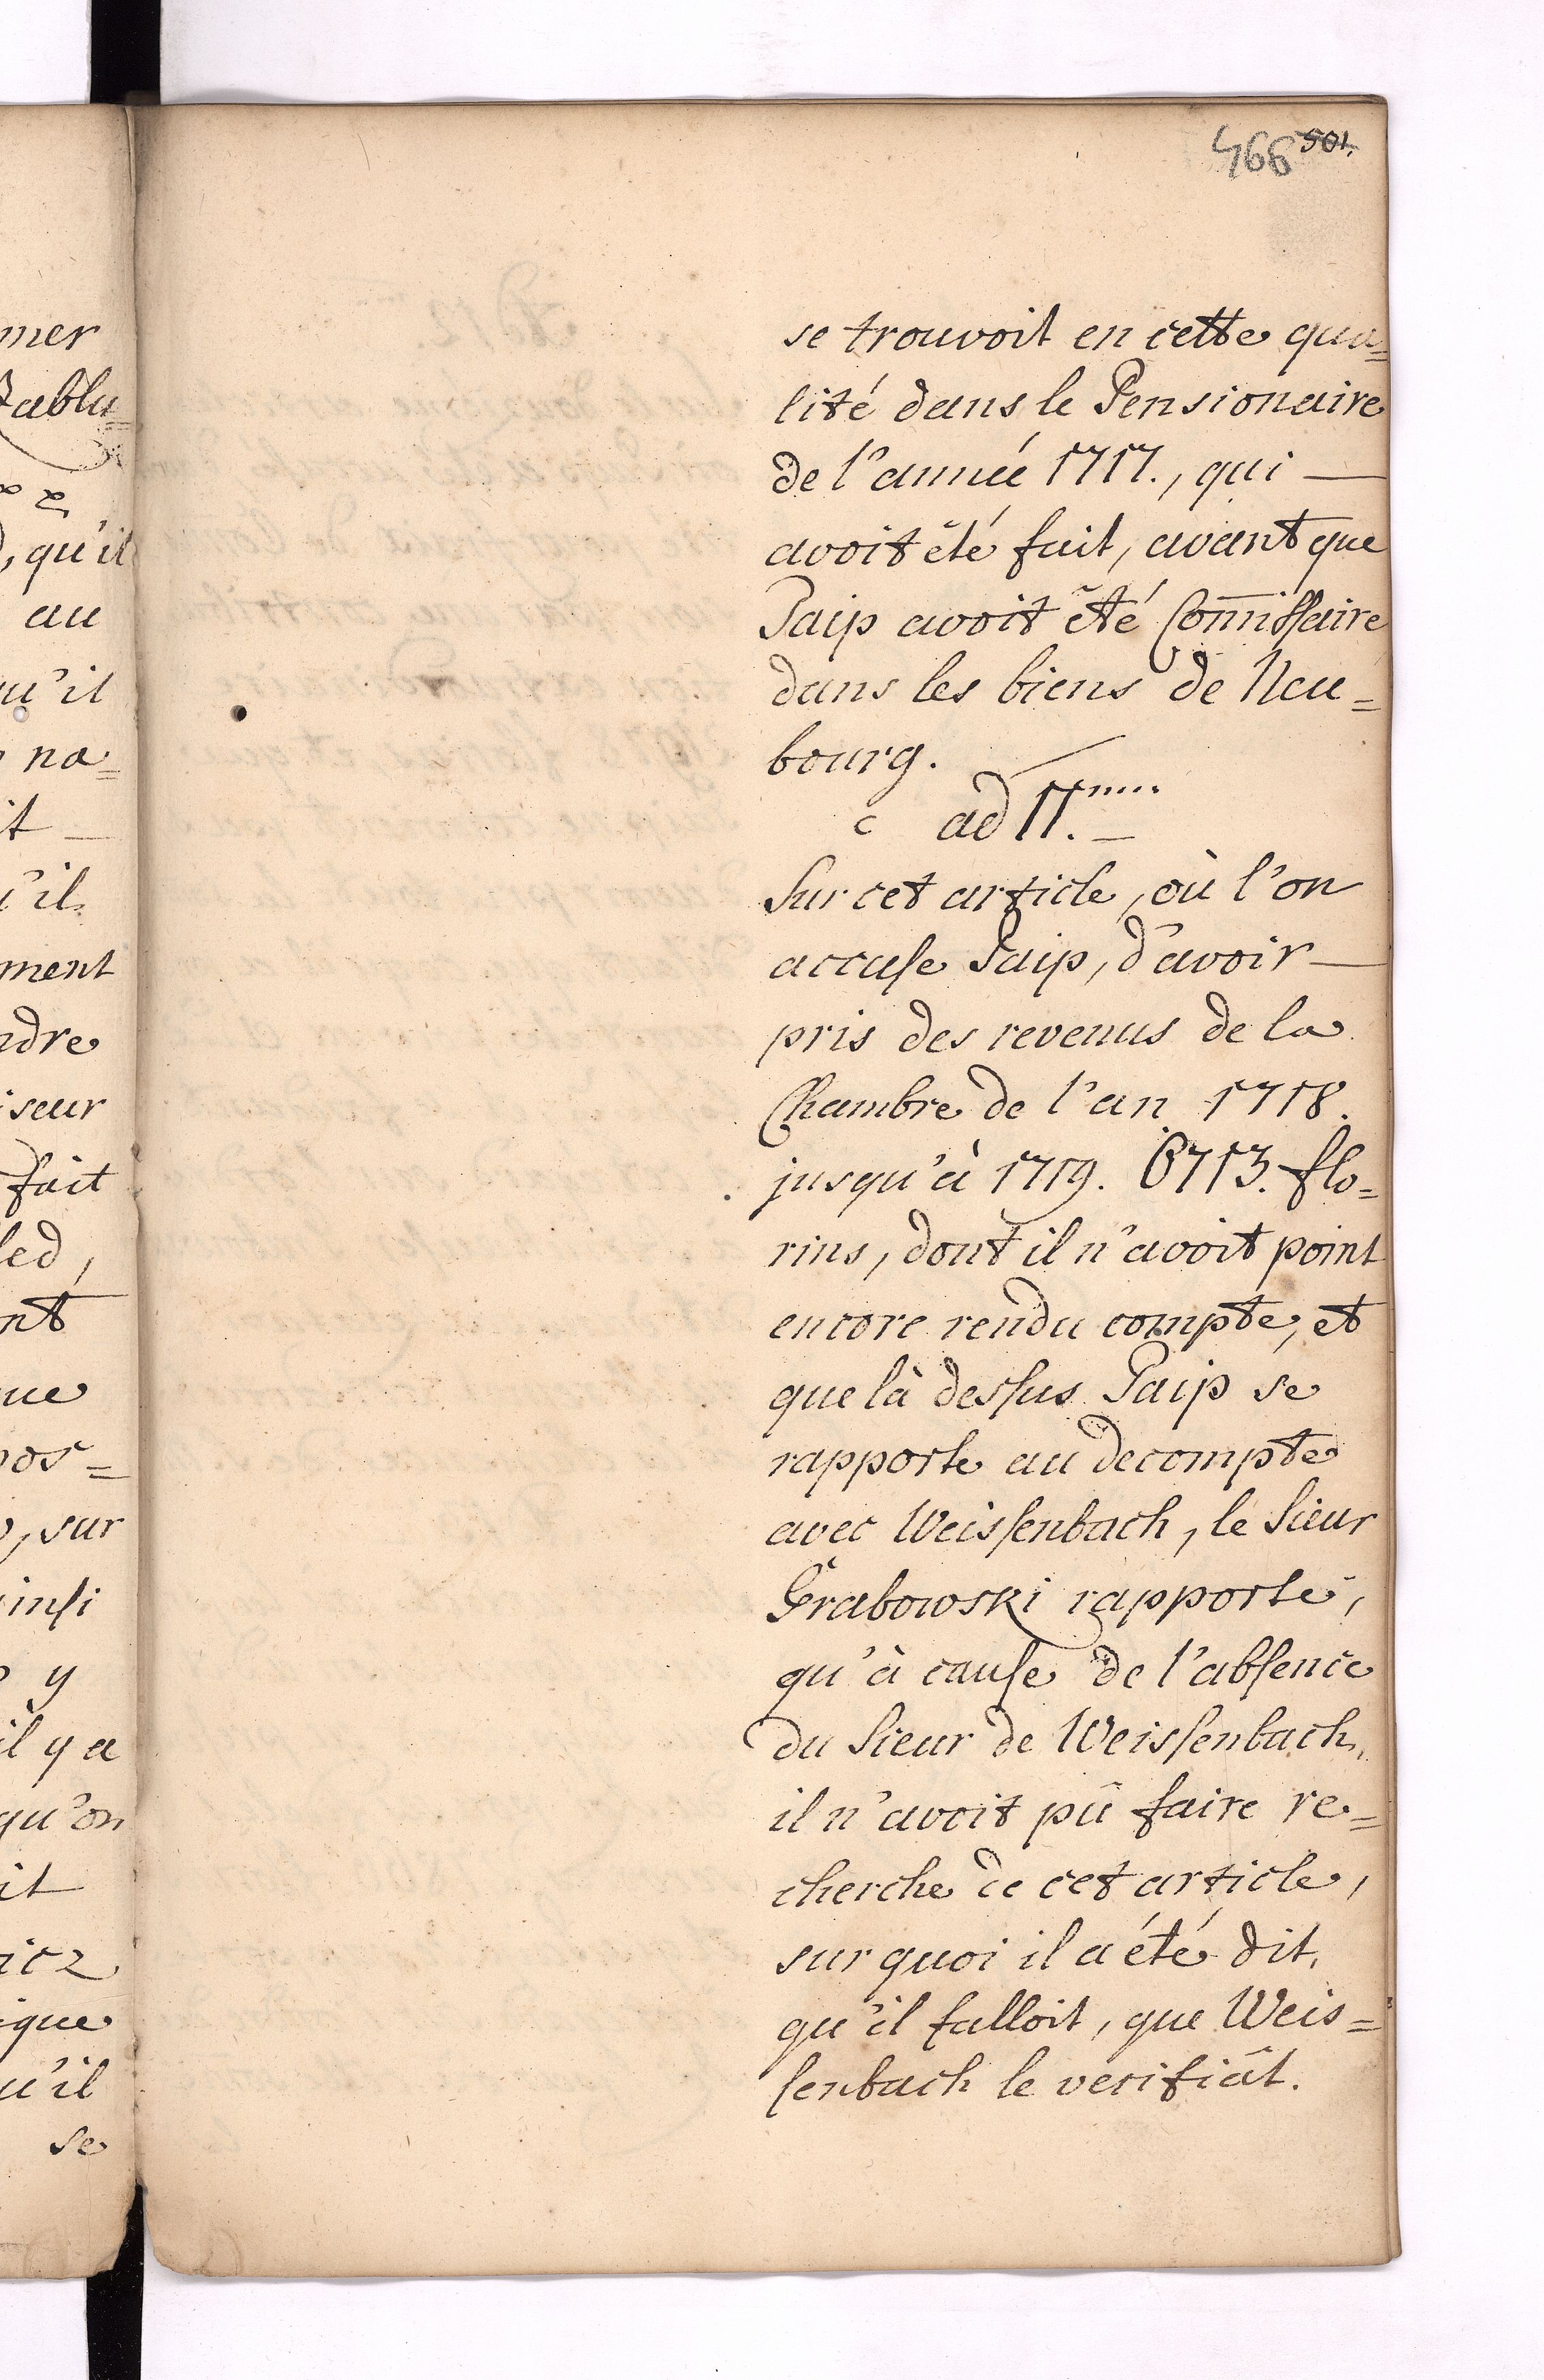 466 501.
se trouvoit en cette qua=
lité dans le Pensionaire
de l'année 1717., qui —
avoit été fait, avant que
Paip avoit été Com̅issaire
dans les biens de Neu=
bourg.
ad 11.
Sur cet article, où l'on
accuse Paip, d'avoir —
pris des revenus de la
Chambre de l'an 1718.
jusqu'à 1719. 6713. flo=
rins, dont il n'avoit point
encore rendu compte, et
que là dessus Paip se
rapporte au decompte
avec Weissenbach, le Sieur
Grabowski rapporte,
qu'à cause de l'absence
du Sieur de Weissenbach,
il n'avoit pû faire re=
cherche de cet article,
sur quoi il a été dit,
qu'il falloit, que Weis=
senbach le verifiât.
mer
qu'il
au
u'il
na=
it —
'il
ment
ndre
iseur
fait
led,
nt
ue
pos=
, sur
insi
y
il y a
qu'on
it
icz
ique
u'il
se